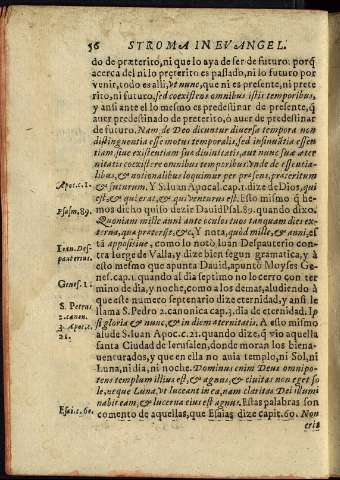 56 STROMA IN EVANGEL.
do de præterito, ni que lo aya de ser de futuro. porq̃
acerca del ni lo preterito es passado, ni lo futuro por
venir, todo es alli, vt nunc, que ni es presente, ni prete
rito, ni futuro, sed coexistens omnibus istis temporibus,
y ansi ante el lo mesmo es predestinar de presente, q̃
auer predestinado de preterito, ò auer de predestinar
de futuro. Nam de Deo dicuntur diuersa tempora non
distinguentia esse motus temporalis, sed infinuttia essen
tiam siue existentiam suæ diuinitatis, aut nunc suæ æter
nitatis coexistere omnibus temporibus. Vnde de essentia-
libus, & notionalibus loquimur per præsens, præteritum
Apoc. c. 1. & futurum. Y S. Iuan Apocal. cap. 1. dize de Dios, qui
est & qui erat, & qui venturus est. Esto mismo q̃ he-
Psalm. 89. mos dicho quiso dezir Dauid Psal. 89. quando dixo.
Quoniam mille anni ante oculos tuos tanquam dies ex-
terna, quæ præterijt, &c, Y nota, quòd mille, & anni, es
Ioan. Des- tà appositiue, como lo notò Iuan Despauterio con-
pauterius. tra Iorge de Valla, y dize bien segun gramatica, y à
esto mesmo que apunta Dauid, apuntò Moyses Ge-
Genes. 1. nes. cap. 1. quando al dia septimo no lo cerro con ter
mino de dia, y noche, como a los demas, aludiendo à
que este numero septenario dize eternidad, y ansi le
S. Petrus llama S. Pedro 2. canonica cap. 3, dia de eternidad. Ip
2. canon. si gloria & nunc, & in diem æternitatis. A esto mismo
3. Apo. c. alude S. Iuan Apoc. c. 21. quando dize, q̃ vio aquella
21. santa Ciudad de Ierusalen, donde moran los biena-
uenturados, y que en ella no auia templo, ni Sol, ni
Luna, ni dia, ni noche. Dominus enim Deus omnipo-
tens templum illius est, & agnus, & ciuitas non eget so
le, neque Luna, vt luceant in ea, nam claritas Dei illumi
nabit eam, & lucerna eius est agnus. Estas palabras son
Esai. c. 60. comento de aquellas, que Esaias dize capit. 60. Non
erit